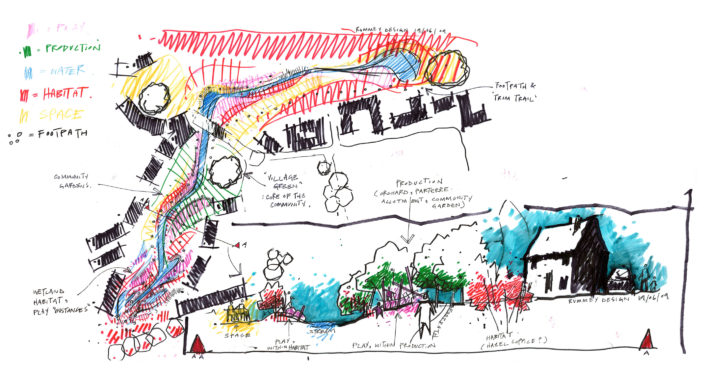 = PLAY
= PRODUCTION
= WATER.
= HABITAT.
= SPACE
= FOOTPATH
RUMMEY DESIGN 09/06/09
FOOTPATH &
'TRIM TRAIL'
COMMUNITY
GARDENS.
"VILLAGE
GREEN"
: CORE OF THE
COMMUNITY.
PRODUCTION
(ORCHARD, PARTERRE
ALLOTMENT, COMMUNITY
GARDEN)
WETLAND
HABITAT &
PLAY
A
SPACE
PLAY
WITHIN HABITAT
STREAM
PLAY, WITHIN PRODUCTION
HABITAT
(HAZEL COPPICE?)
RUMMEY DESIGN 09/06/09
A